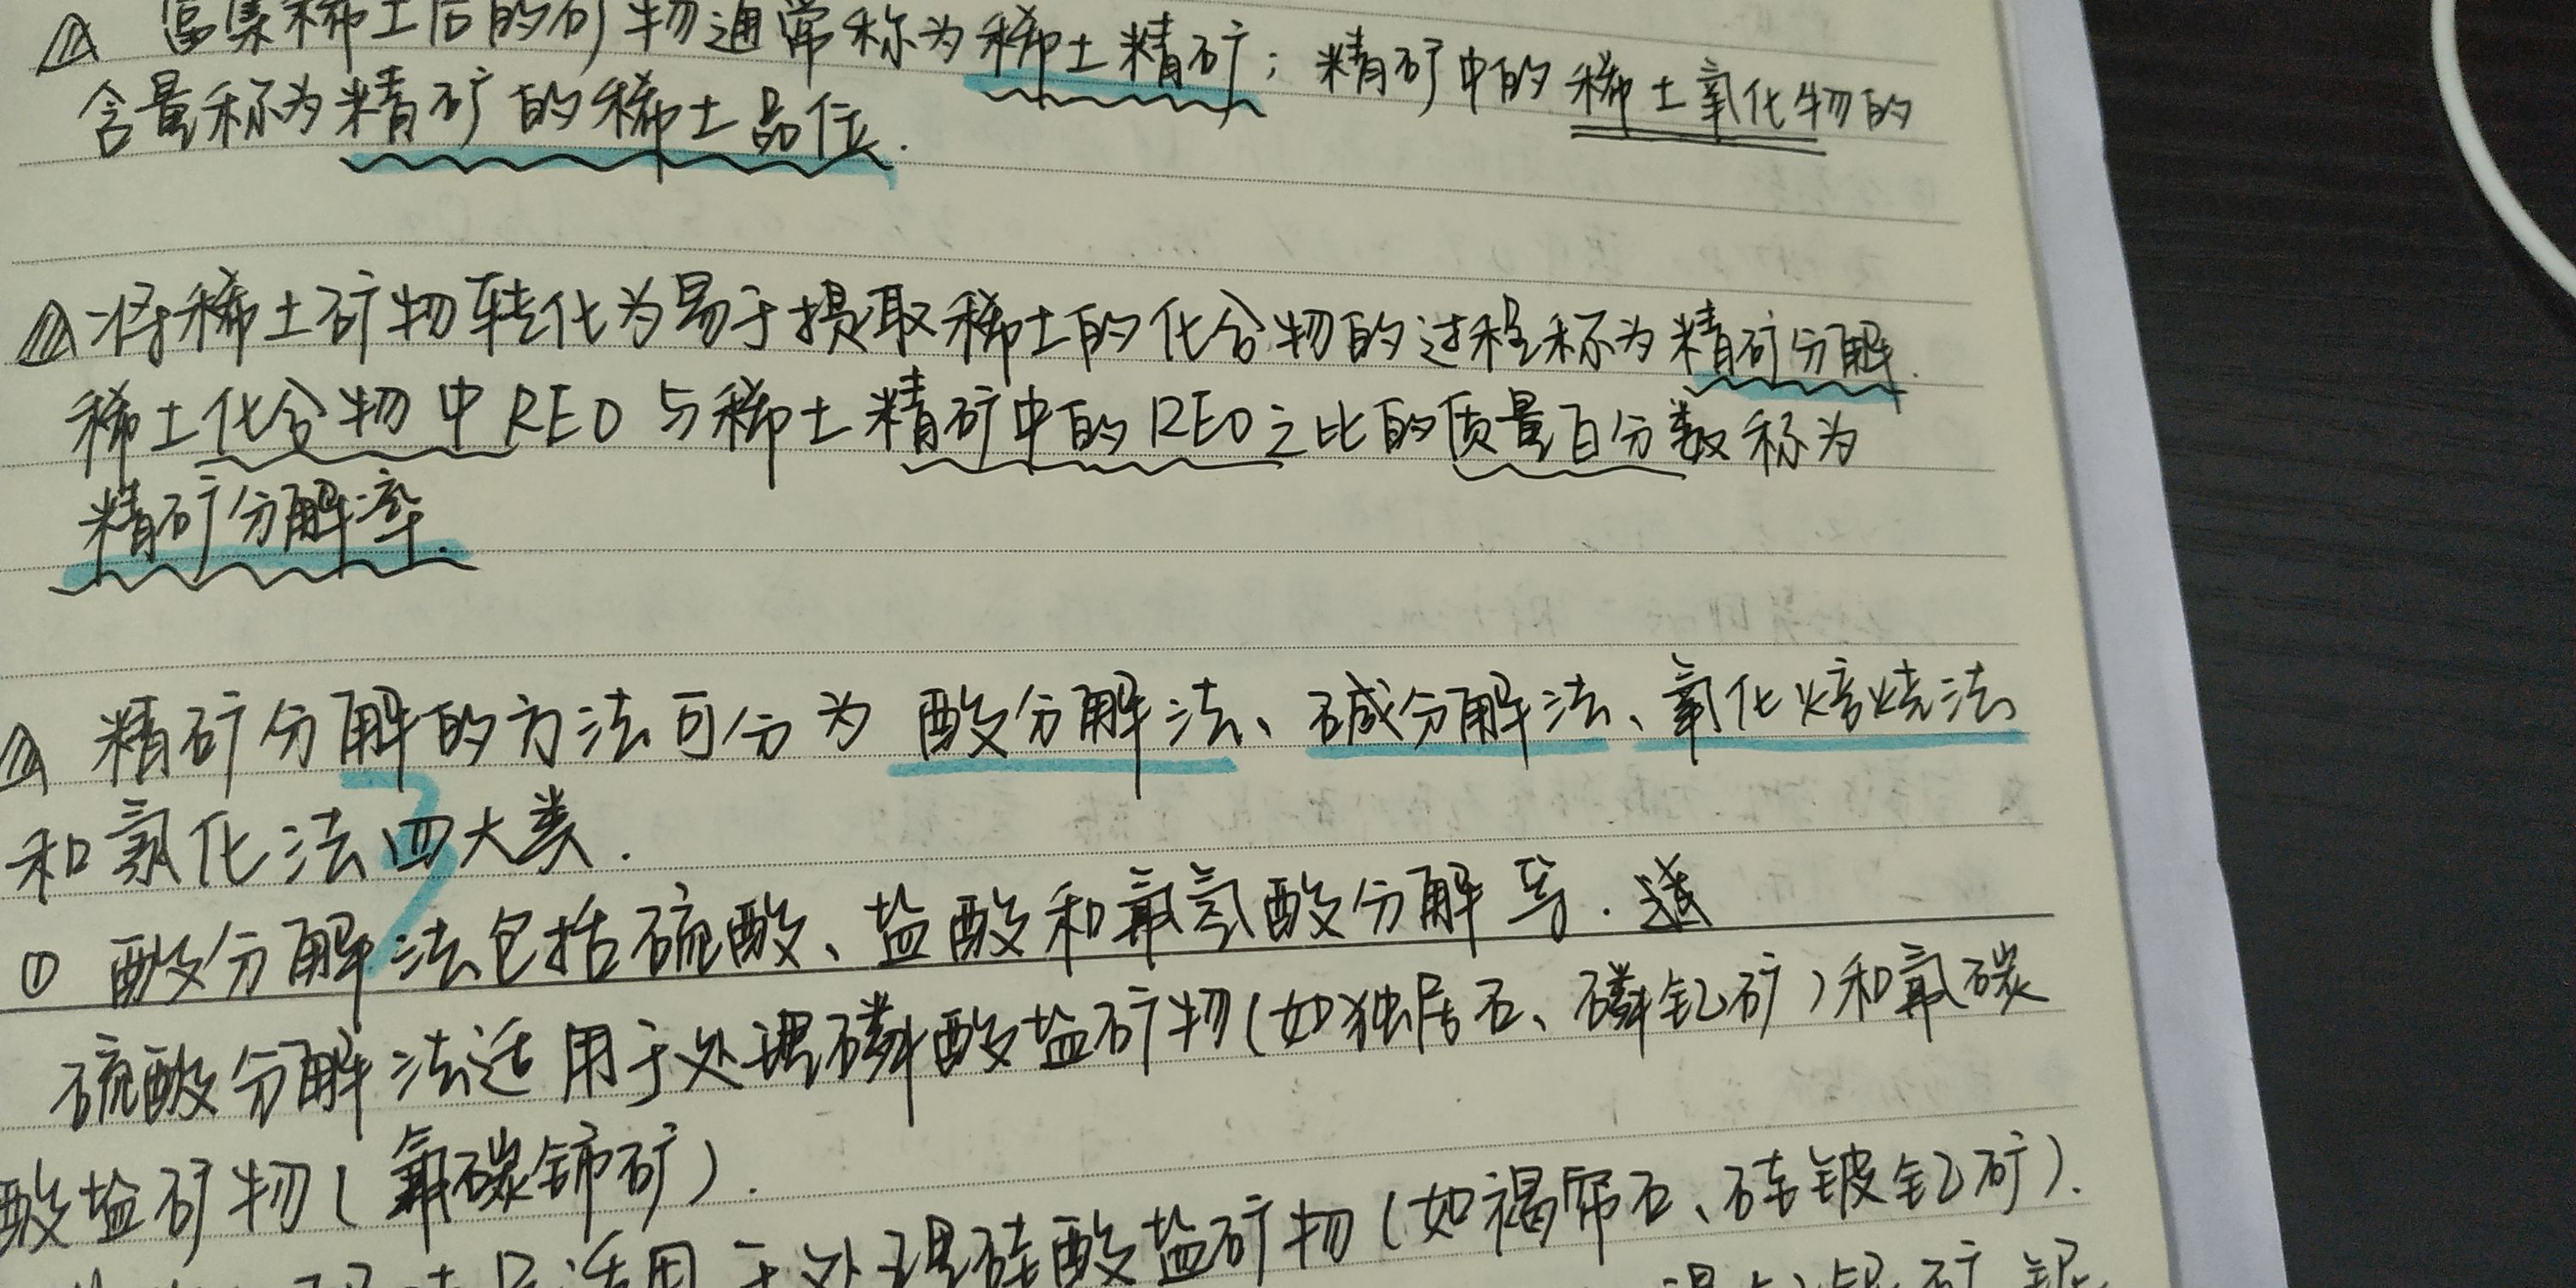 富集稀土后的矿物通常称为稀土精矿；精矿中的稀土氧化物的
含量称为精矿的稀土品位.
将稀土矿物转化为易于提取稀土的化合物的过程称为精矿分解.
稀土化合物中REO与稀土精矿中的REO之比的质量百分数称为
精矿分解率.
精矿分解的方法可分为酸分解法、碱分解法、氧化焙烧法
和氯化法四大类.
① 酸分解法包括硫酸、盐酸和氟氢酸分解等.
硫酸分解法适用于处理磷酸盐矿物(如独居石、磷钇矿)和氟碳
酸盐矿物(氟碳铈矿).
适用于处理硅酸盐矿物(如褐帘石、硅铍钇矿).